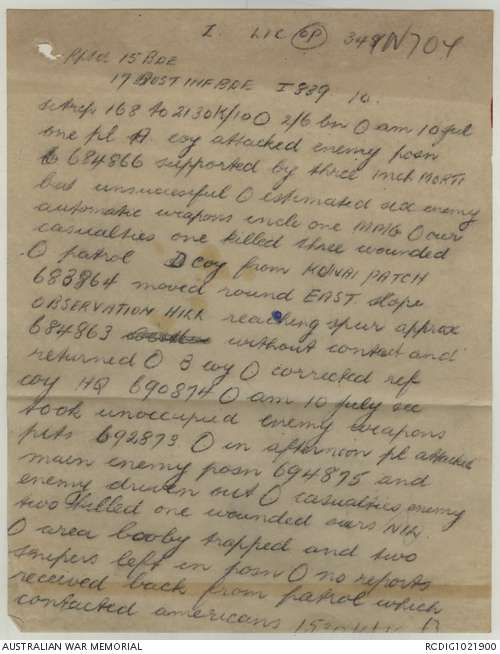 I. LIC OP 349 N704
15 BDE
17 AUST INF BDE I 839 10.
sitrep 168 to 2130K/10 O 2/6 bn O am 10 jul
one pl A coy attacked enemy posn
684866 supported by three inch MORTS
but unsuccessful O estimated six enemy
automatic weapons incl one MMG O our
casualties one killed three wounded
O patrol D coy from KUNAI PATCH
683864 moved round EAST slope
OBSERVATION HILL reaching spur approx
684863 without contact and
returned O B coy O corrected ref
coy HQ 690874 O am 10 July sec
took unoccupied enemy weapons
pits 692873 O in afternoon pl attacked
main enemy posn 694875 and
enemy driven out O casualties enemy
two killed one wounded ours NIL
O area booby trapped and two
snipers left in posn O no reports
received back from patrol which
contacted americans
AUSTRALIAN WAR MEMORIAL
RCDIG1021900